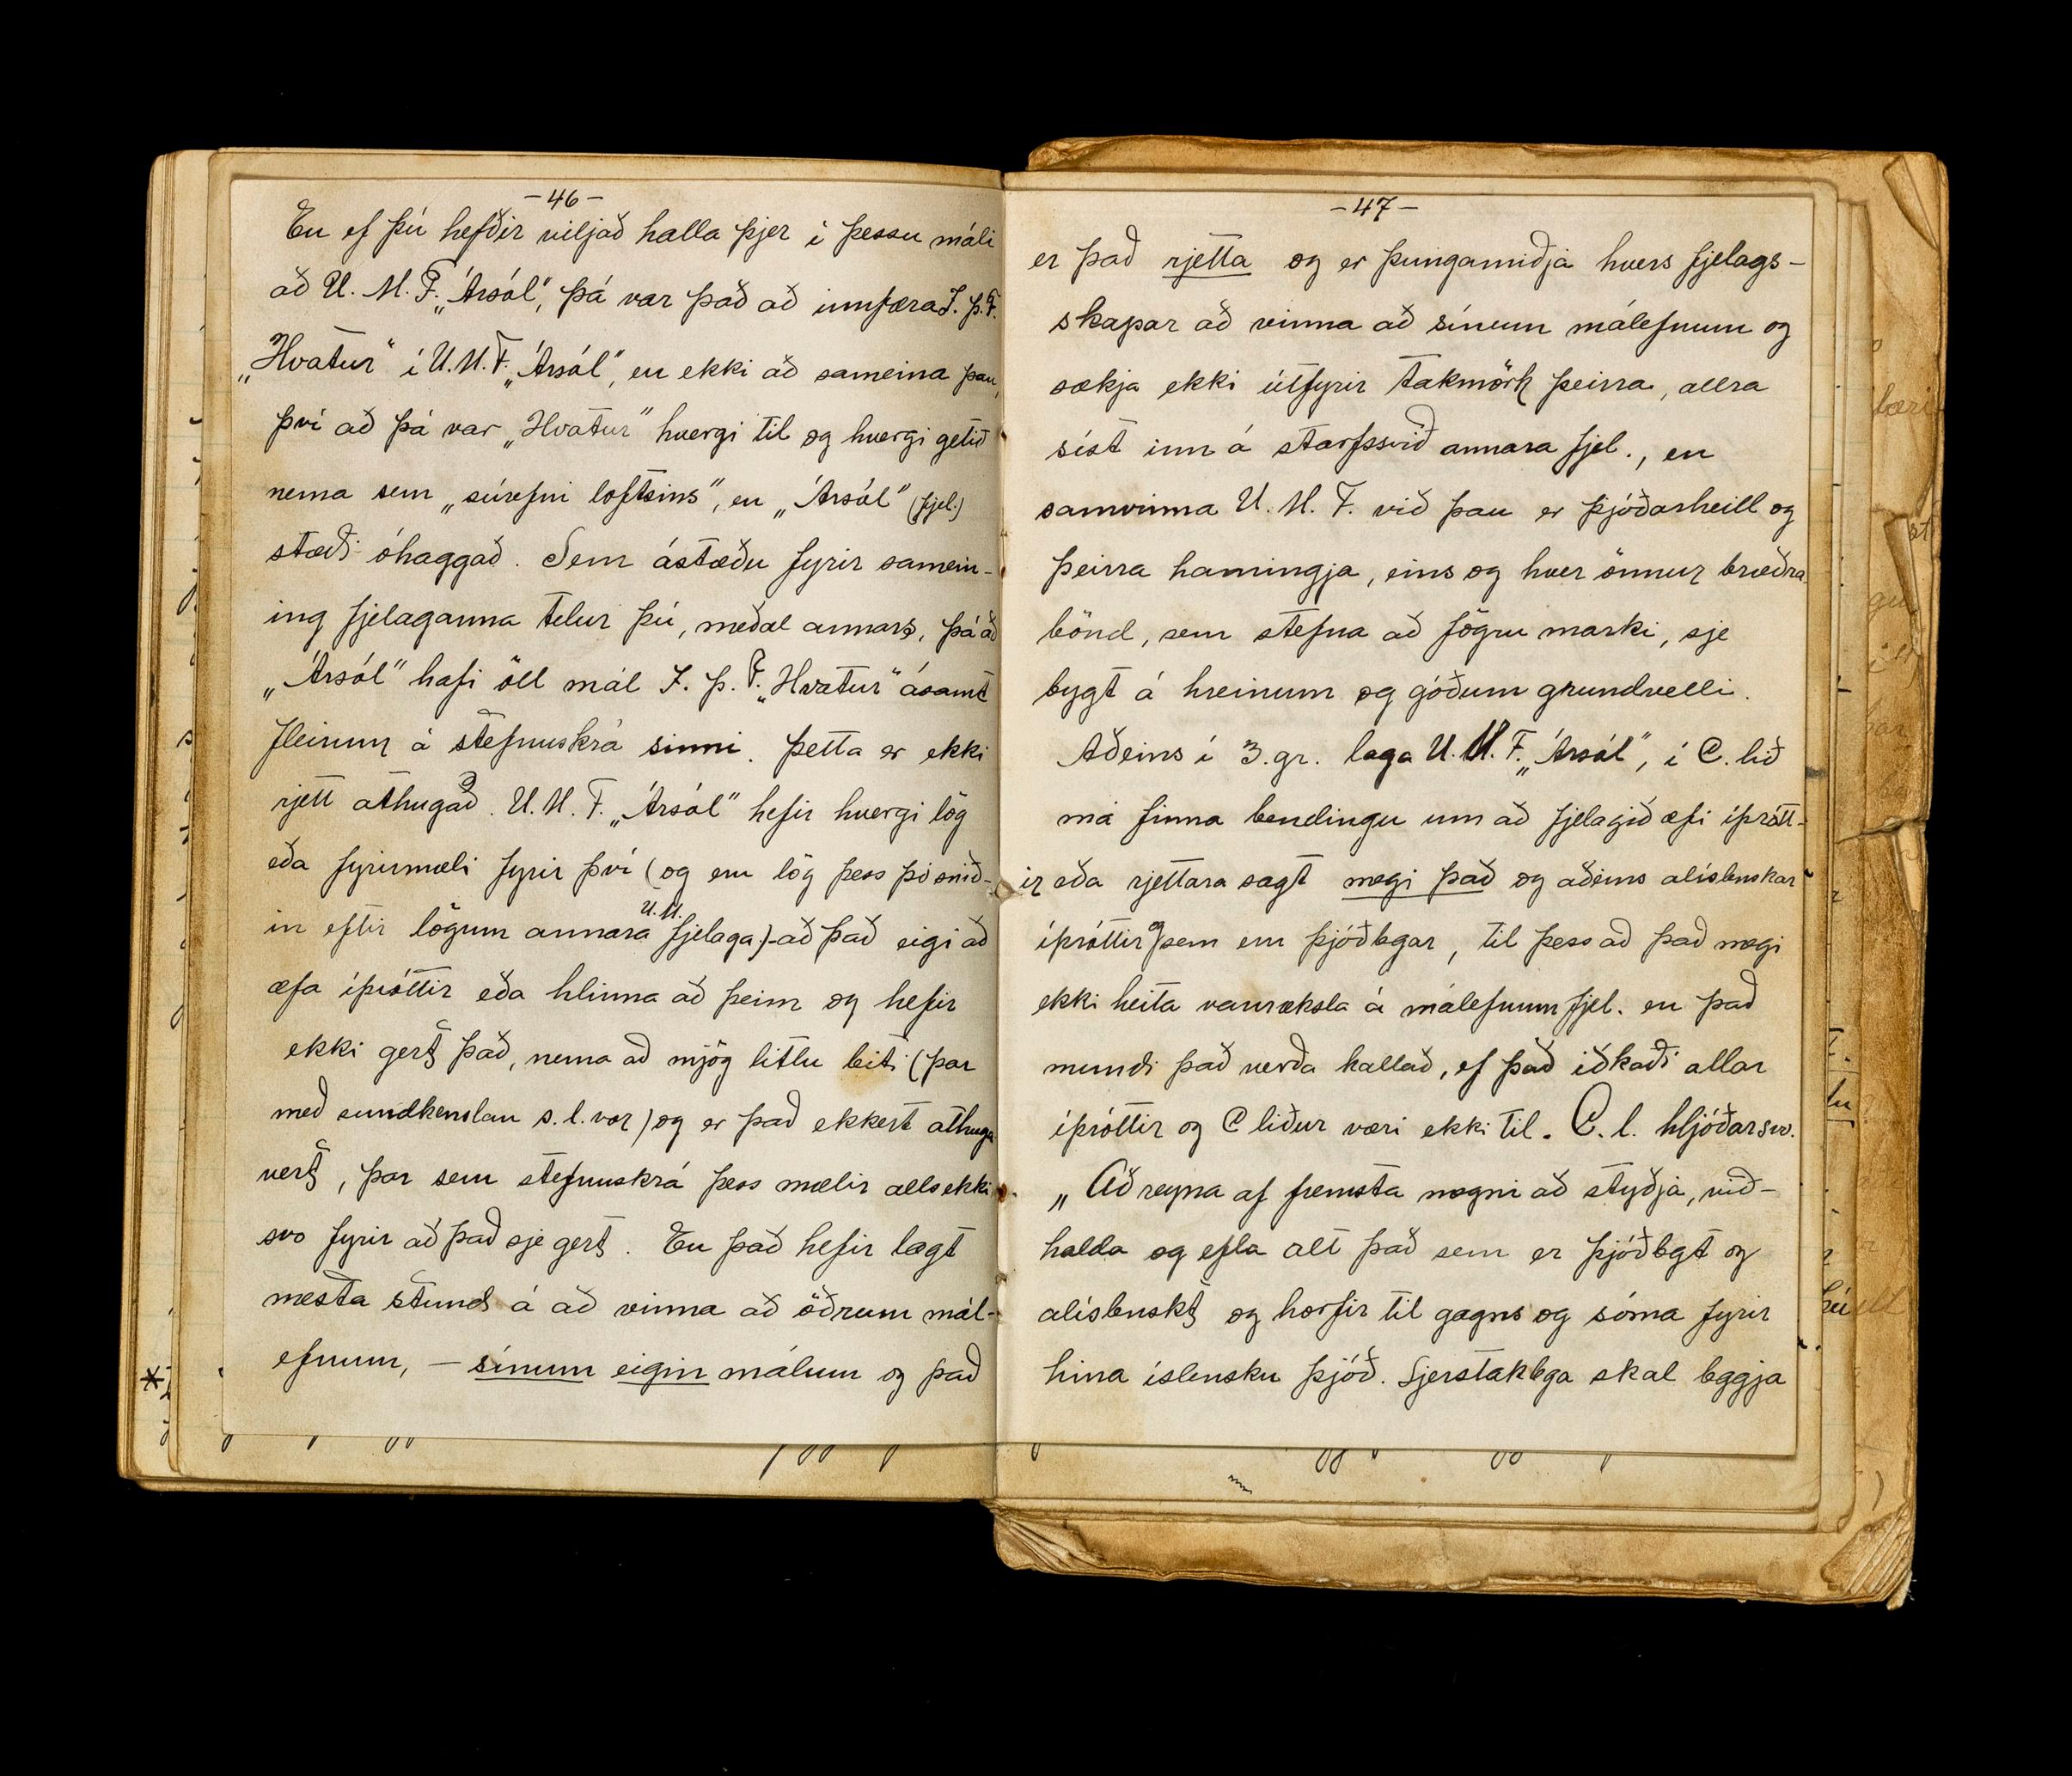 -46-
En ef þú hefðir viljað halla þjer í þessu máli
að U. M. F. „Ársól", þá var það að innfæra Í. þ. F.
„Hvatur" í U. M. F. „Ársól", en ekki að sameina þau,
því að þá var „Hvatur" hvergi til og hvergi getið
nema sem „súrefni loftsins", en „Ársól" (fjel.)
stæði óhaggað. Sem ástæðu fyrir samein-
ing fjelaganna telur þú, meðal annars, þá að
„Ársól" hafi öll mál Í. þ. F. „Hvatur" ásamt
fleirum á stefnuskrá sinni. Þetta er ekki
rjett athugað. U. M. F. „Ársól" hefir hvergi lög
eða fyrirmæli fyrir því (og eru lög þess þó snið-
in eftir lögum annara U. M. fjelaga) - að það eigi að
æfa íþróttir eða hlinna að þeim og hefir
ekki gert það, nema að mjög litlu leiti (þar
með sundkenslan s. l. vor) og er það ekkert athuga
vert, þar sem stefnuskrá þess mælir alls ekki
svo fyrir að það sje gert. En það hefir lagt
mesta stund á að vinna að öðrum mál-
efnum, - sínum eigin málum og það
-47-
er það rjetta og er þungamiðja hvers fjelags-
skapar að vinna að sínum málefnum og
sækja ekki útfyrir takmörk þeirra, allra
síst inn á starfssvið annara fjel., en
samvinna U. M. F. við þau er þjóðarheill og
þeirra hamingja, eins og hver önnur bræðra
bönd, sem stefna að fögru marki, sje
bygt á hreinum og góðum grundvelli.
Aðeins í 3. gr. laga U. M. F. „Ársól", í C. lið
má finna bendingu um að fjelagið æfi íþrótt-
ir eða rjettara sagt megi það og aðeins alíslenskar
íþróttir og sem eru þjóðlegar, til þess að það megi
ekki heita vanræksla á málefnum fjel. en það
mundi það verða kallað, ef það iðkaði allar
íþróttir og C liður væri ekki til. C. l. hljóðar svo.
„Að reyna af fremsta megni að styðja, við-
halda og efla alt það sem er þjóðlegt og
alíslenskt og horfir til gagns og sóma fyrir
hina íslensku þjóð. Sjerstaklega skal leggja